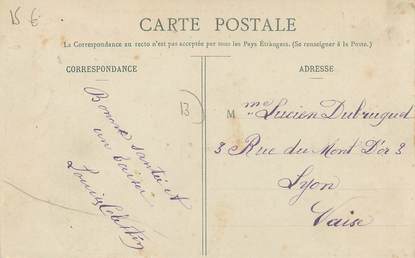 15 €
CARTE POSTALE
La Correspondance au recto n'est pas acceptée par tous les Pays Étrangers. (Se renseigner à la Poste.)
CORRESPONDANCE
ADRESSE
13
Bonne santé et
un baiser
Louis Célestin
Mme Lucien Dubruguet
3 Rue du Mont D'or 3
Lyon
Vaise